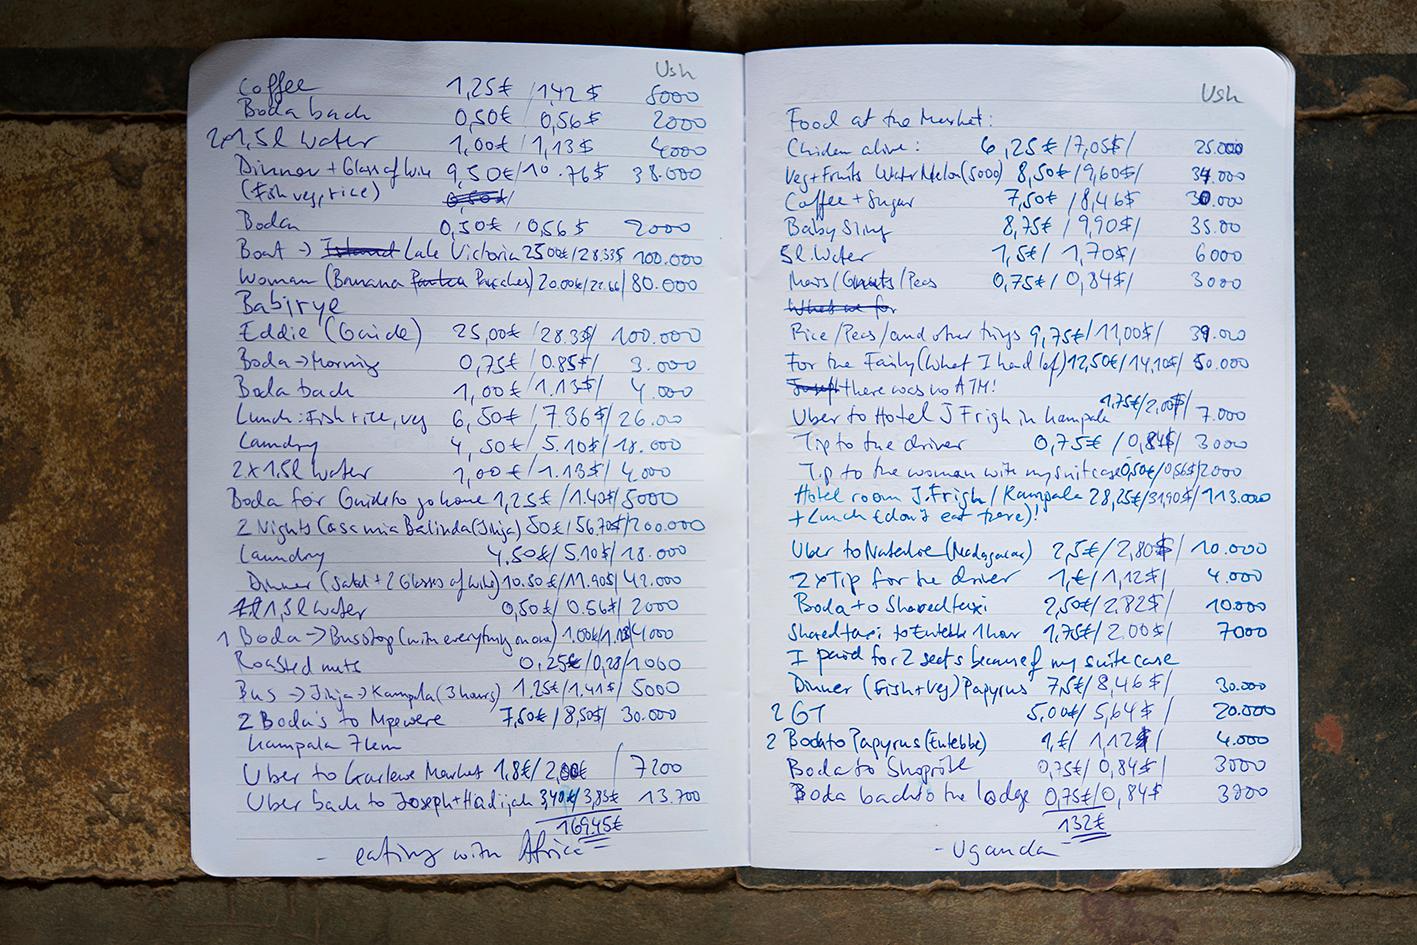 Ush
Coffee 1,25€ / 1,42 $ 5000
Boda back 0,50€ / 0,56 $ 2000
2x1,5l water 1,00€ / 1,13$ 4000
Dinner + Glass of wine 9,50€/10.76$ 38.000
(Fish veg, rice)
Boda 0,50€ / 0,56$ 2000
Boat → Island Lake Victoria 25.00€/28.33$ 100.000
Woman (Banana Pancakes) 20.00€/22.66/ 80.000
Babirye
Eddie (Guide) 25,00€ / 28.3$/ 100.000
Boda → Morning 0,75€ / 0.85$/ 3.000
Boda back 1,00€ / 1.13$/ 4.000
Lunch: Fish rice, veg 6,50€ / 7.36$ / 26.000
Laundry 4,50€ / 5.10$ / 18.000
2x1,5l water 1,00€ / 1.13$ / 4.000
Boda for Guide to go home 1,25€ / 1.40$/ 5000
2 Nights Casa mia Balinda (Jinja) 50€ / 56.70$/ 200.000
Laundry 4,50€/ 5.10$ / 18.000
Dinner (Salat + 2 Glasses of wine) 10.50€/11.90$/ 42.000
1,5l water 0,50€/ 0.56$/ 2000
1 Boda → Busstop (with everything on one) 1,00€/1,13$/4000
Roasted nuts 0,25€ / 0,28/ 1000
Bus → Jinja → Kampala (3 hours) 1,25€/1.41$/ 5000
2 Boda's to Mpewere 7,50€ / 8,50$/ 30.000
Kampala 7km
Uber to Market 1,8€/ 2,00€ / 7200
Uber back to Joseph + Hadijah 3,40€/3,85€ / 13.700
169,45€
- eating with Africa -
Ush
Food at the Market:
Chicken alive: 6,25€ / 7,05$/ 25.000
Veg + Fruits Water Melon (5000) 8,50€ / 9,60$/ 34.000
Coffee + Sugar 7,50€ / 8,46$/ 30.000
Baby Sling 8,75€ / 9,90$/ 35.00
5l. Water 1,5€ / 1,70$/ 6000
Mais/Gnuts/Peas 0,75€ / 0,84$/ 3000
What we for
Rice/Peas/and other things 9,75€/11,00$/ 39.000
For the Family (What I had left) 12,50€/14,10$/ 50.000
Joseph there was no ATM!
Uber to Hotel J Frigh in Kampala 1,75€/2,00$/ 7.000
Tip to the driver 0,75€ / 0,84$/ 3000
Tip to the woman with my suitcase 0,50€/0,56$/2000
Hotel room J. Frigh / Kampala 28,25€/31,90$/ 113.000
+ Lunch (don't eat here)!
Uber to (Madagascar) 2,5€/ 2,80$/ 10.000
2xTip for the driver 1,€/ 1,12$/ 4.000
Boda to Shared taxi 2,50€/ 2,82$/ 10.000
Shared taxi to Entebbe 1 hour 1,75€/ 2,00$/ 7000
I paid for 2 seats because of my suite case
Dinner (Fish + Veg) Papyrus 7,5€/ 8,46$/ 30.000
2 GT 5,00€/ 5,64$ / 20.000
2 Boda to Papyrus (Entebbe) 1,€/ 1,12$ / 4.000
Boda to Shoprite 0,75€/ 0,84$/ 3000
Boda back to the lodge 0,75€/0,84$ 3000
132€
- Uganda -